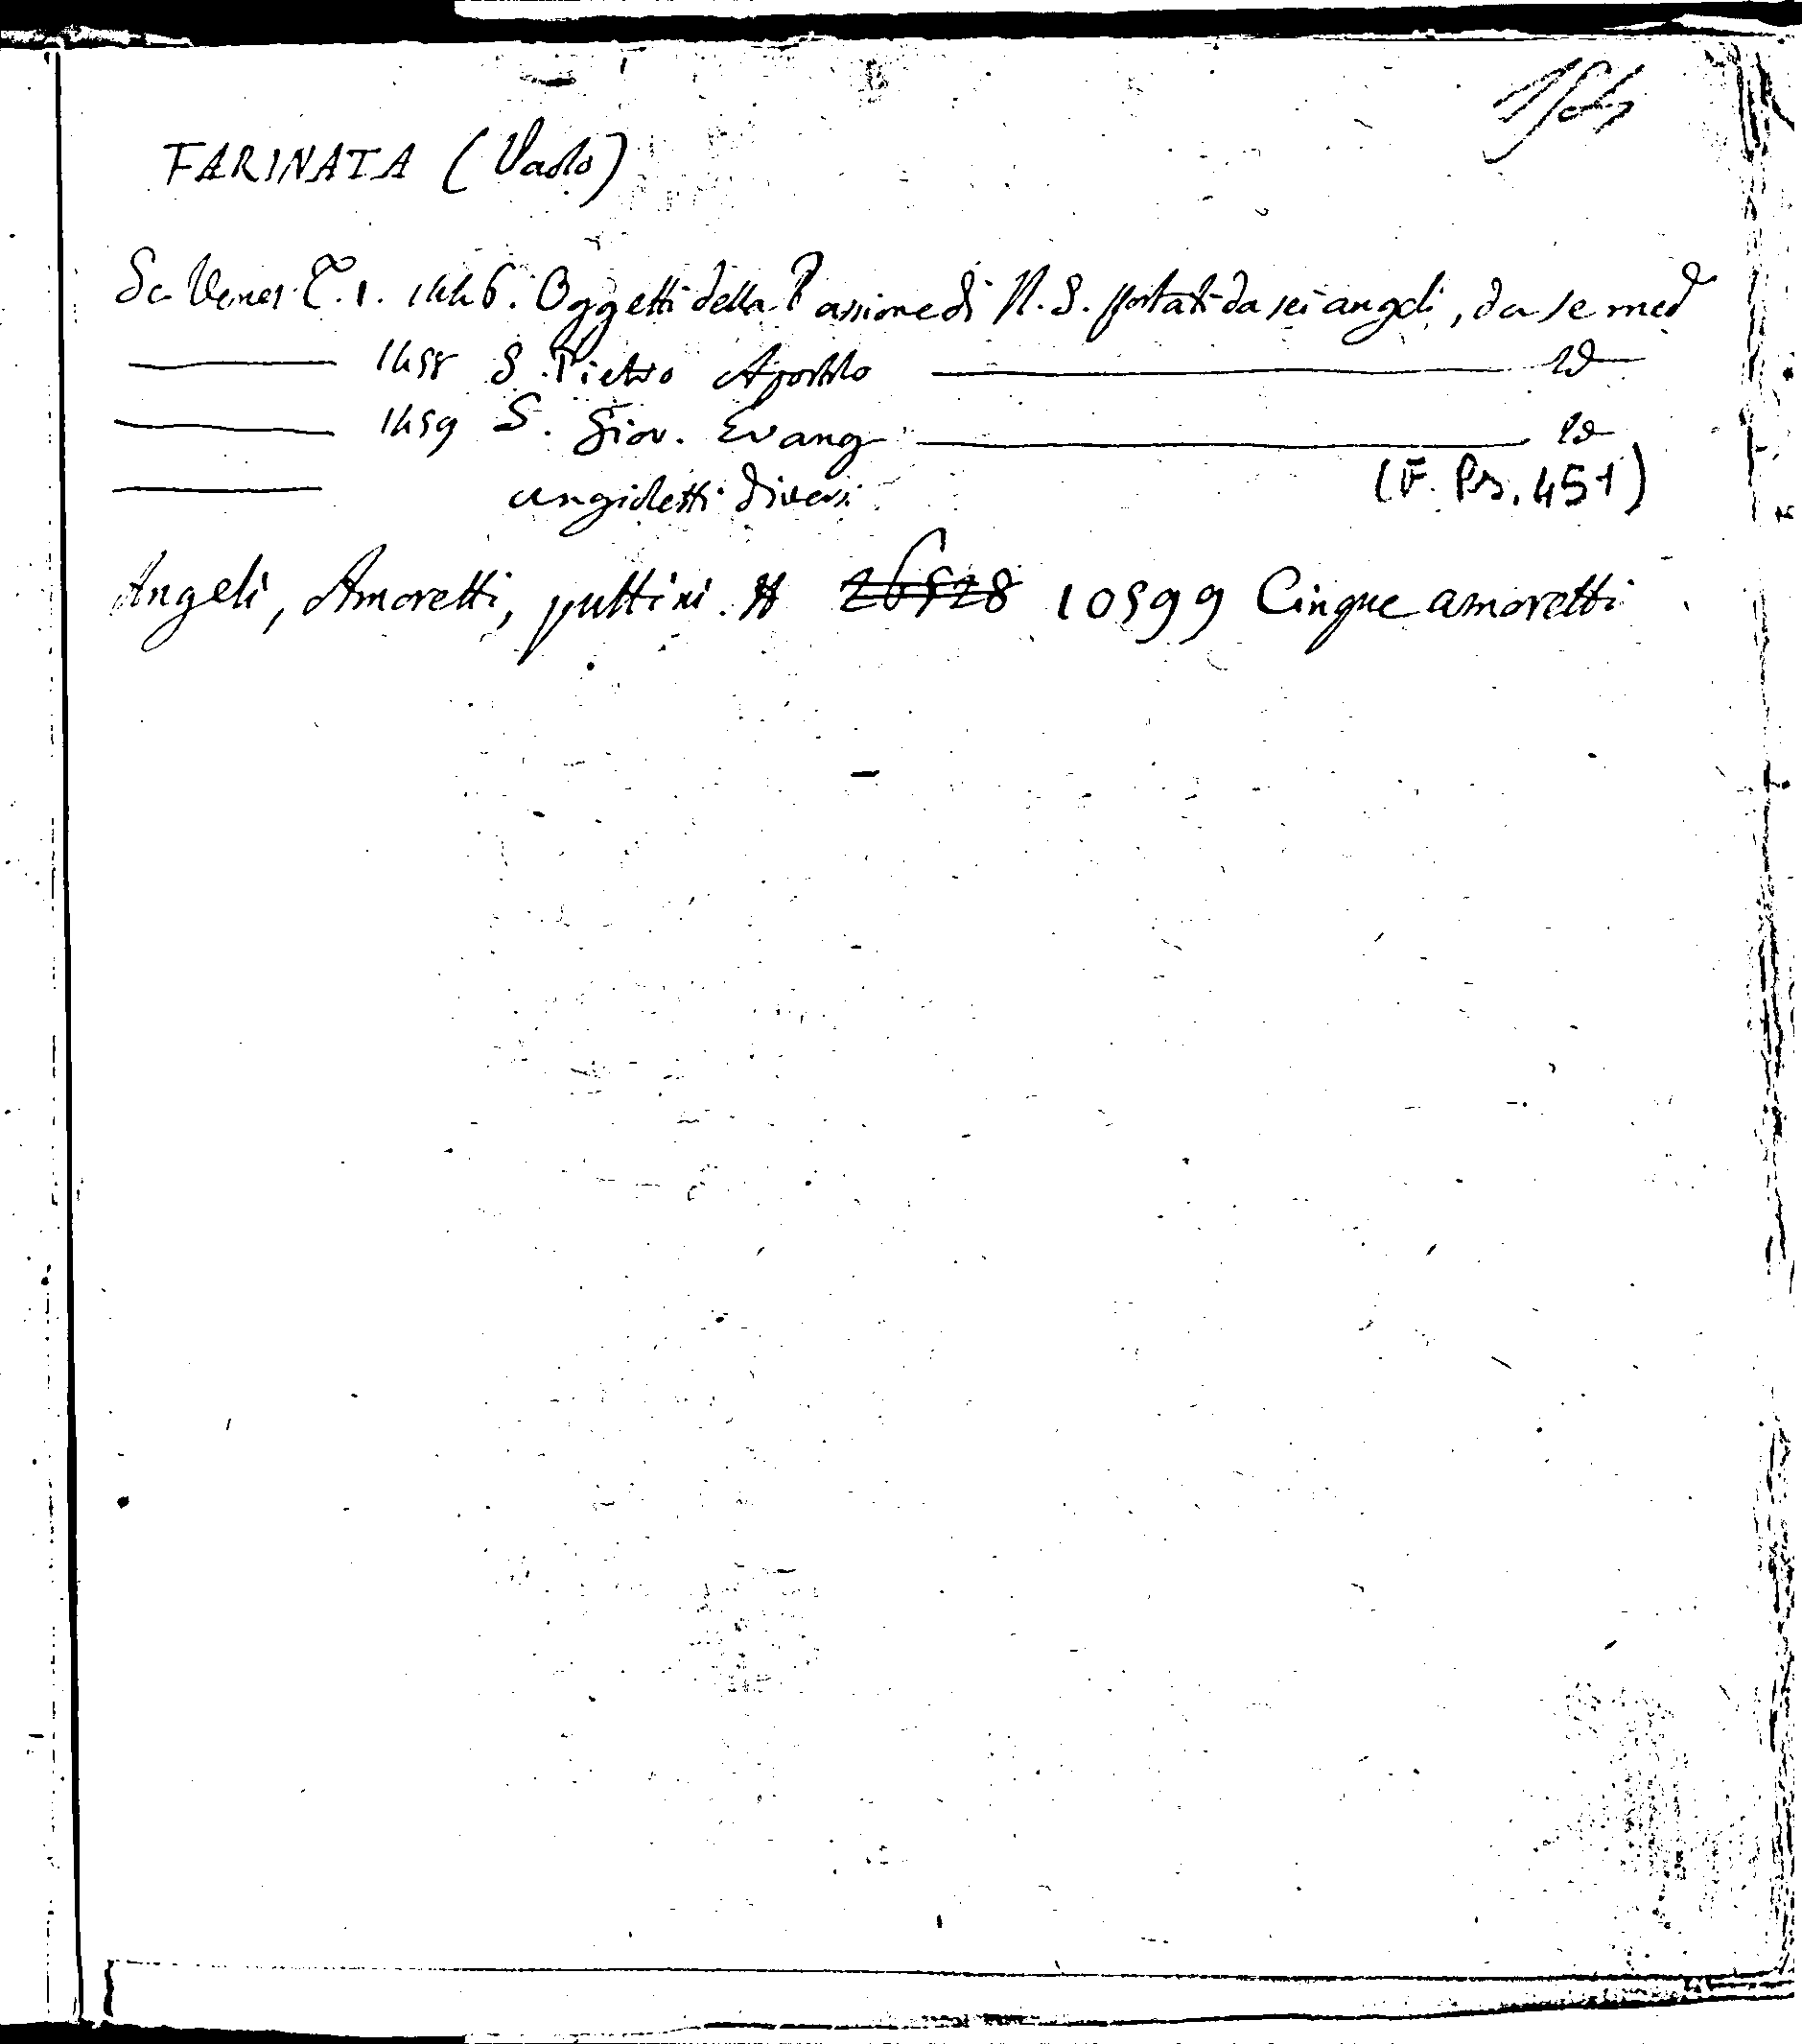 FARINATA (Paolo)
Sc. Venez. T. 1. 1446. Oggetti della Passione di N. S. portati da sei angeli, da se med
1458 S. Pietro Apostolo id
1459 S. Giov. Evang id
angioletti diversi (F. Ps. 451)
Angeli, Amoretti, puttini. 26528 10599 Cinque amoretti